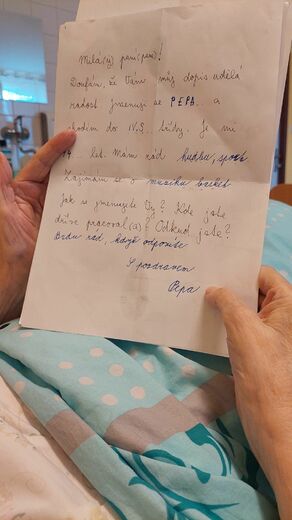 Milá(ý) paní (pane)!
Doufám, že Vám můj dopis udělá
radost. Jmenuji se PEPA.. a
chodím do IV.S.. třídy. Je mi
14.. let. Mám rád hudbu, sport
Zajímám se o muziku basket
Jak se jmenujete Vy? Kde jste
dříve pracoval(a)? Odkud jste?
Budu rád, když odpovíte
S pozdravem
Pepa